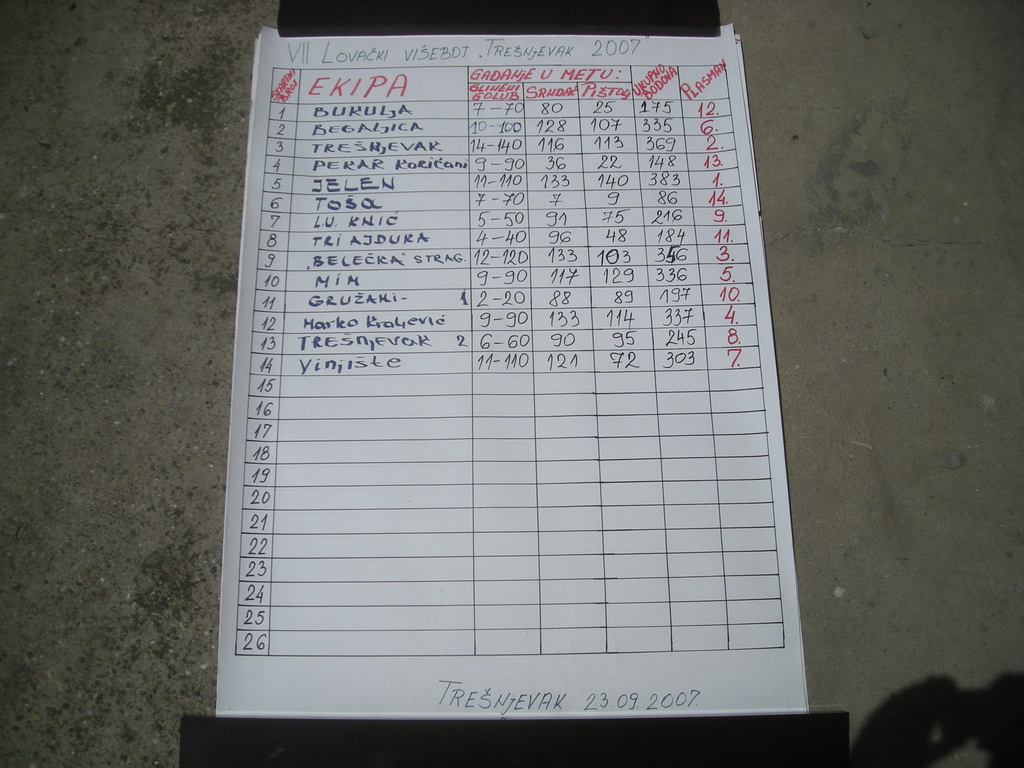 VII LOVAČKI VIŠEBOJ "TREŠNJEVAK 2007"
STARTNI BROJ EKIPA GAĐANJE U METU: UKUPNO BODOVA PLASMAN
GLINENI GOLUB SRNDAĆ PIŠTOLJ
1 BUKULJA 7-70 80 25 175 12.
2 BEGALJICA 10-100 128 107 335 6.
3 TREŠNJEVAK 14-140 116 113 369 2.
4 PEKAR Koričani 9-90 36 22 148 13.
5 JELEN 11-110 133 140 383 1.
6 TOŠA 7-70 7 9 86 14.
7 L.U. KNIĆ 5-50 91 75 216 9.
8 TRI AJDUKA 4-40 96 48 184 11.
9 "BELEČKA" STRAG. 12-120 133 103 356 3.
10 MIM 9-90 117 129 336 5.
11 GRUŽANI- 1 2-20 88 89 197 10.
12 Marko Kraljević 9-90 133 114 337 4.
13 TREŠNJEVAK 2 6-60 90 95 245 8.
14 Vinjište 11-110 121 72 303 7.
15
16
17
18
19
20
21
22
23
24
25
26
TREŠNJEVAK 23.09.2007.